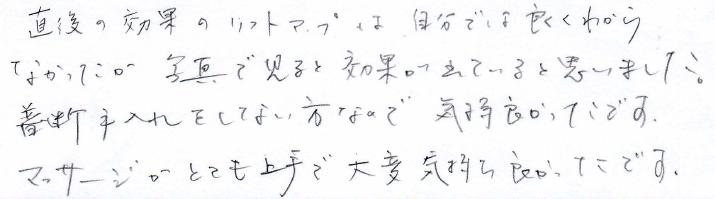 直後の効果のリフトアップは自分では良くわから
なかったが写真で見ると効果が出ていると思いました。
普断手入れをしてない方なので気持良かったです。
マッサージがとても上手で大変気持ち良かったです。